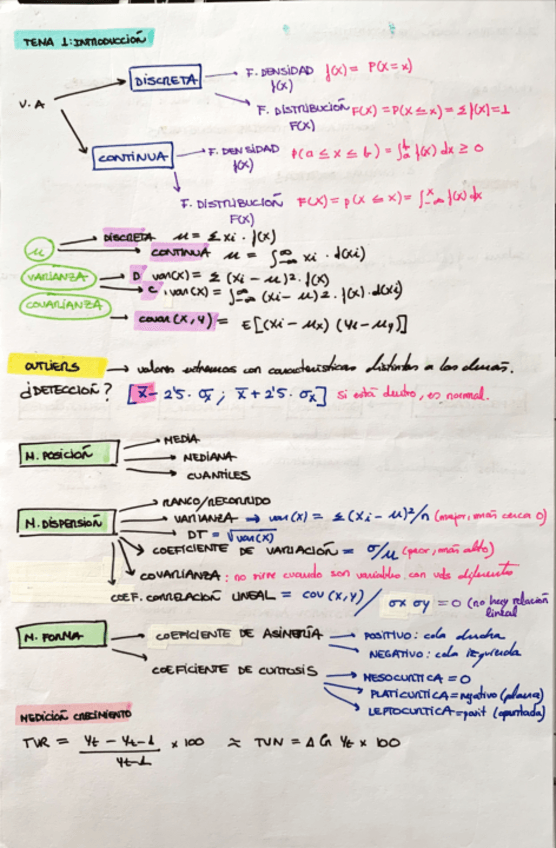 TEMA 1: INTRODUCCIÓN
V.A
DISCRETA → F. DENSIDAD f(x) = P(X=x)
f(x)
F. DISTRIBUCIÓN F(x) = P(X ≤ x) = Σ f(x) = 1
F(x)
CONTINUA → F. DENSIDAD P(a ≤ x ≤ b) = ∫ₐᵇ f(x) dx ≥ 0
f(x)
F. DISTRIBUCIÓN F(x) = p(X ≤ x) = ∫₋∞ˣ f(x) dx
F(x)
μ → DISCRETA μ = Σ xi · f(x)
CONTINUA μ = ∫₋∞^∞ xi · d(xi)
VARIANZA → D var(x) = Σ (xi − μ)² · f(x)
C. var(x) = ∫₋∞^∞ (xi − μ)2 · f(x) · d(xi)
COVARIANZA → covar(x,y) = E[(xi − μx) (yi − μy)]
OUTLIERS → valores extremos con características distintas a los demás.
¿DETECCIÓN? [x̄ − 2'5 · σx ; x̄ + 2'5 · σx] si está dentro, es normal.
M. POSICIÓN → MEDIA
→ MEDIANA
→ CUANTILES
M. DISPERSIÓN → RANGO/RECORRIDO
→ VARIANZA → var(x) = Σ (xi − μ)²/n (mejor, más cerca 0)
→ DT = √var(x)
COEFICIENTE DE VARIACIÓN = σ/μ (peor, más alto)
COVARIANZA: no sirve cuando son variables con uds diferentes
COEF. CORRELACIÓN LINEAL = cov(x,y) / σx σy = 0 (no hay relación
lineal
M. FORMA → COEFICIENTE DE ASIMETRÍA → POSITIVO: cola derecha
→ NEGATIVO: cola izquierda
→ COEFICIENTE DE CURTOSIS
→ MESOCURTICA = 0
→ PLATICURTICA = negativo (plana)
→ LEPTOCURTICA = posit (apuntada)
MEDICIÓN CRECIMIENTO
TVR = yt − yt-1 / yt-1 x 100 ≈ TVN = Δ ln yt x 100